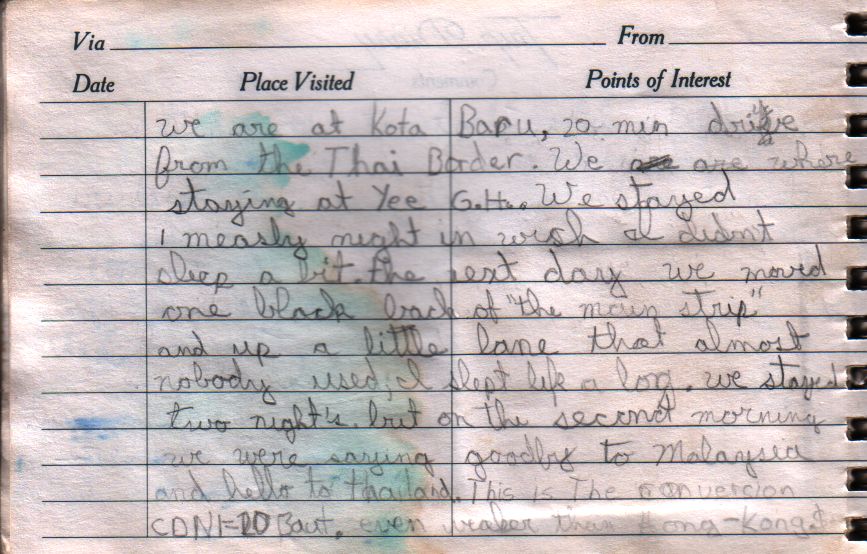 Via From
Date Place Visited Points of Interest
we are at Kota Baru, 20 min drive
from the Thai Border. We are where
staying at Yee G.H.. We stayed
1 measly night in wich I didnt
sleep a bit. the next day we moved
one block back of "the main strip"
and up a little lane that almost
nobody used, I slept like a log. we stayed
two night's. but on the second morning
we were saying goodby to Malaysia
and hello to thailand. This is The convercion
CDN1=20 Baut. even weaker than Hong-Kong.